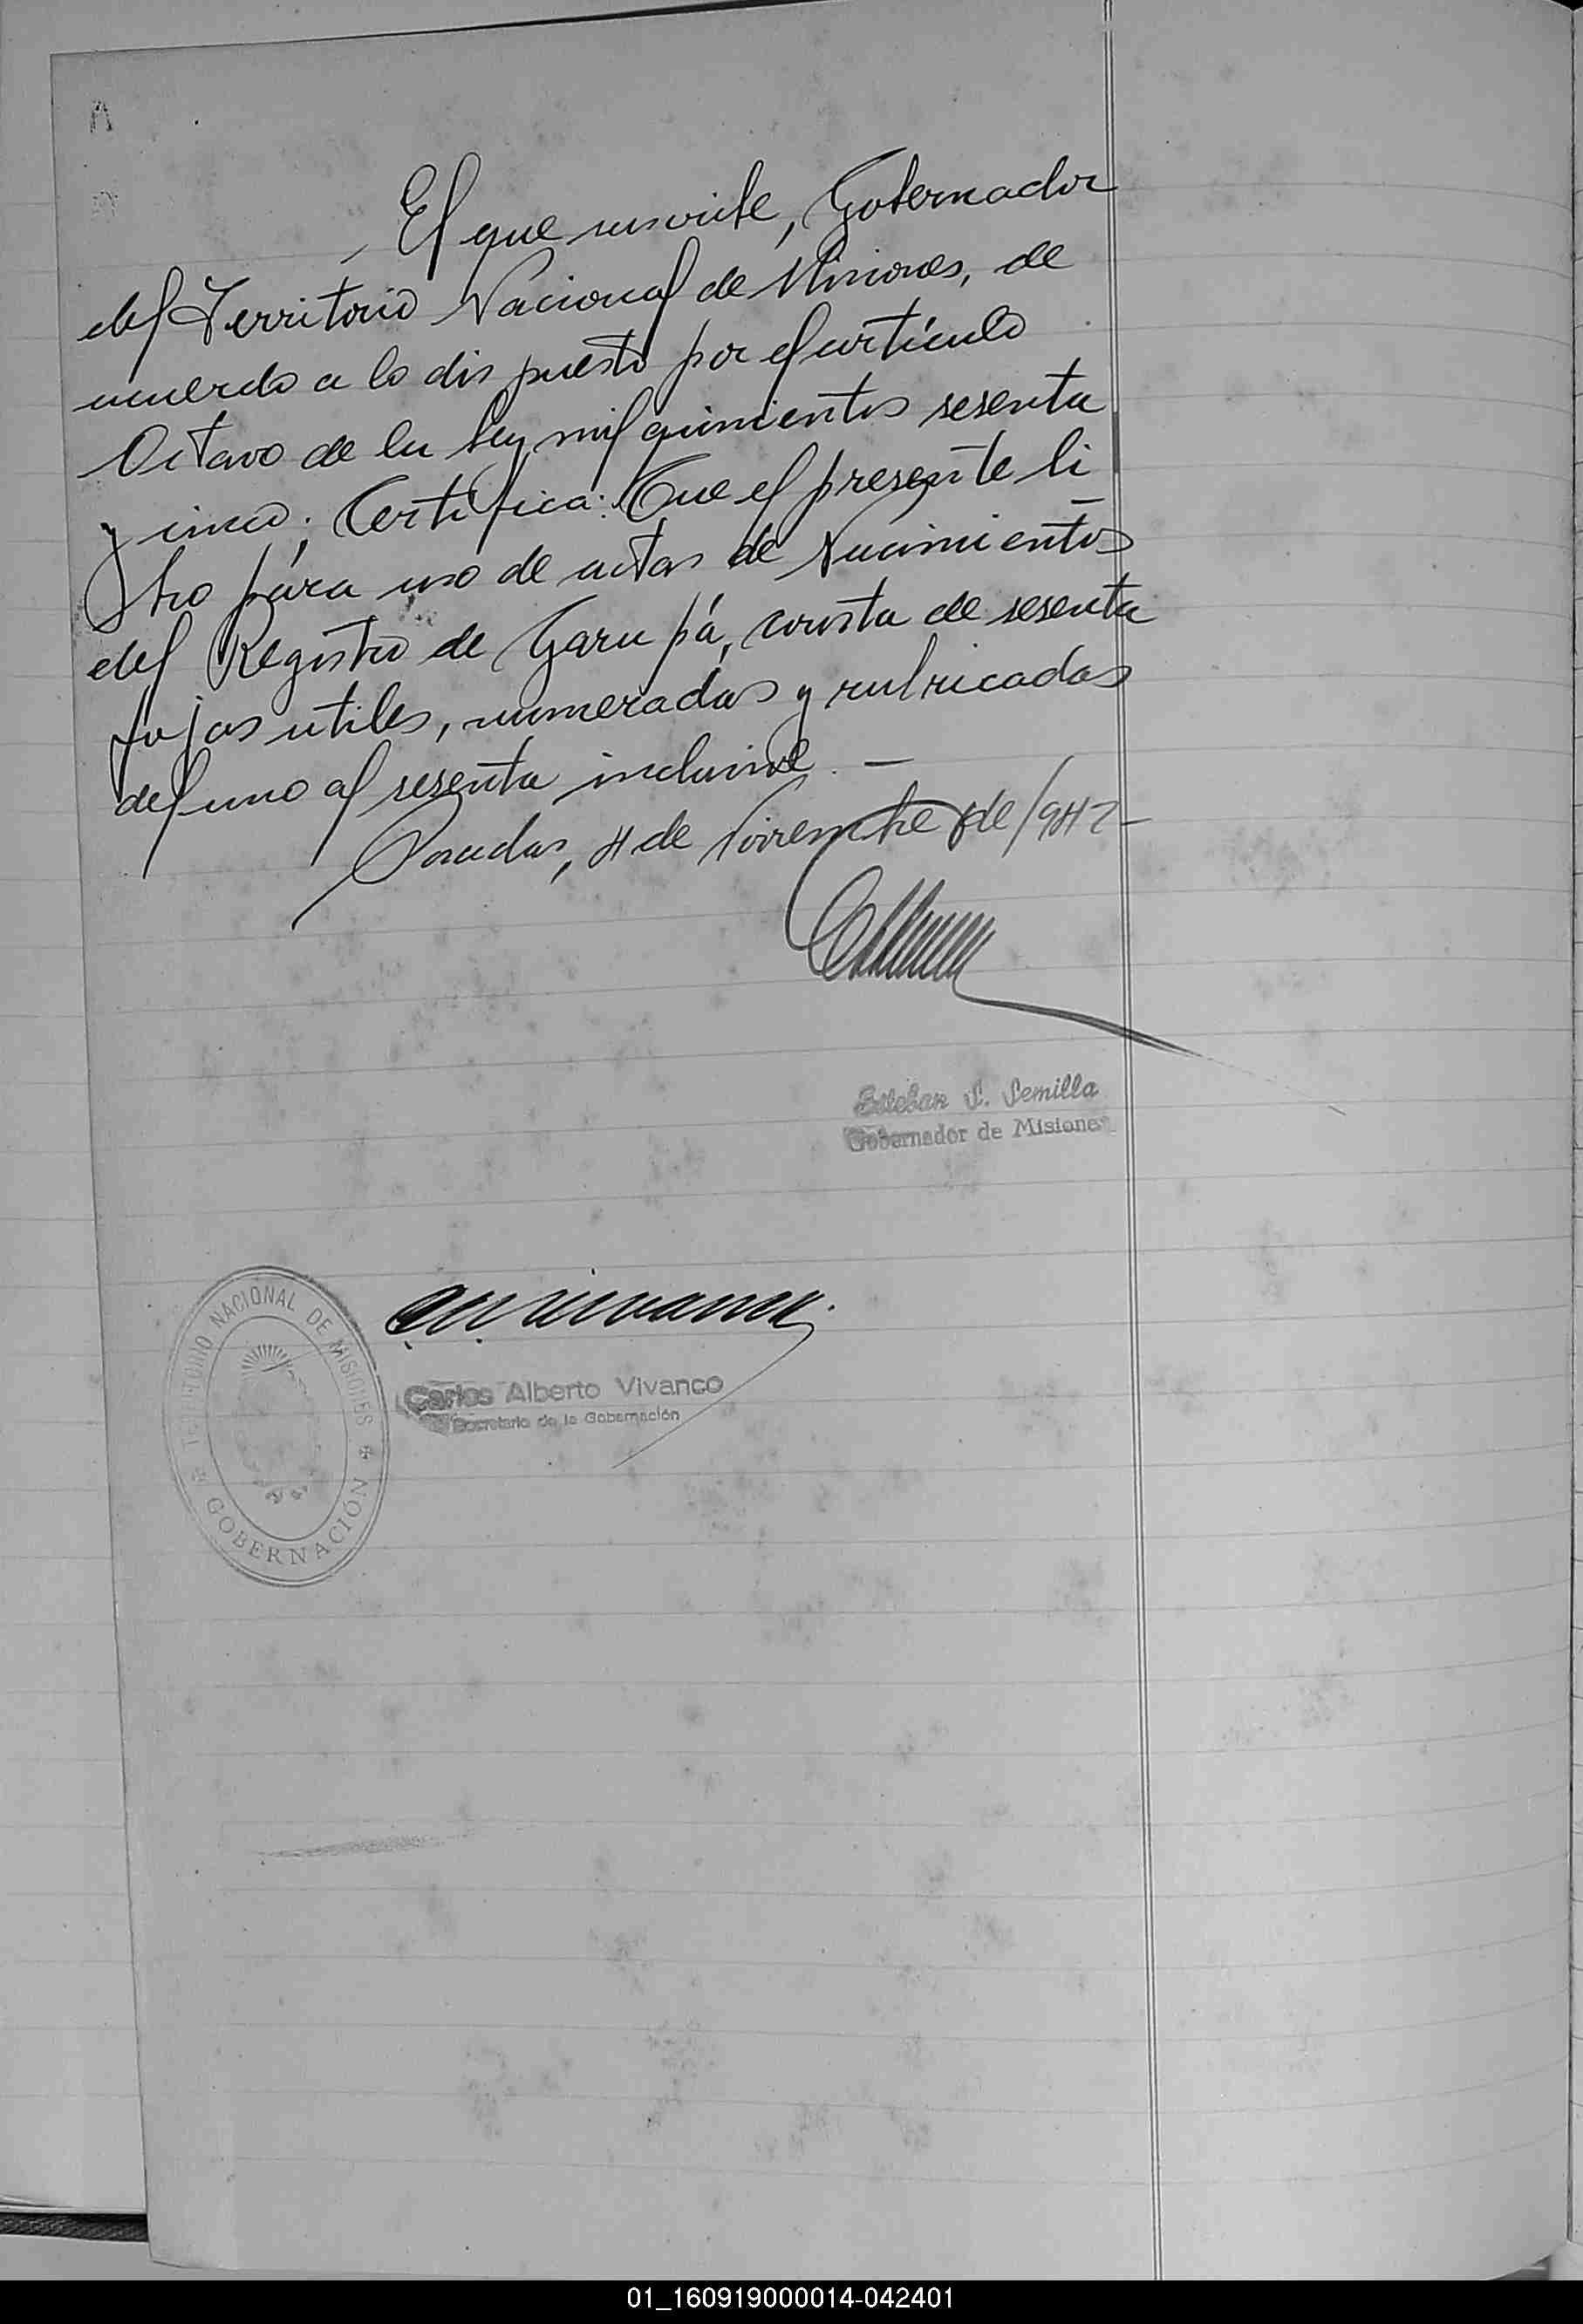 El que suscribe, Gobernador
del Territorio Nacional de Misiones, de
acuerdo a lo dispuesto por el artículo
Octavo de la Ley mil quinientos sesenta
y cinco; Certifica: Que el presente li
bro para uso de actas de Nacimientos
del Registro de Garupá, consta de sesenta
fojas utiles, numeradas y rubricadas
del uno al sesenta inclusive. —
Posadas, 4 de Noviembre de 1942 —
Esteban S. Semilla
Gobernador de Misiones
TERRITORIO NACIONAL DE MISIONES
GOBERNACIÓN
Carlos Alberto Vivanco
Secretario de la Gobernación
01_160919000014-042401